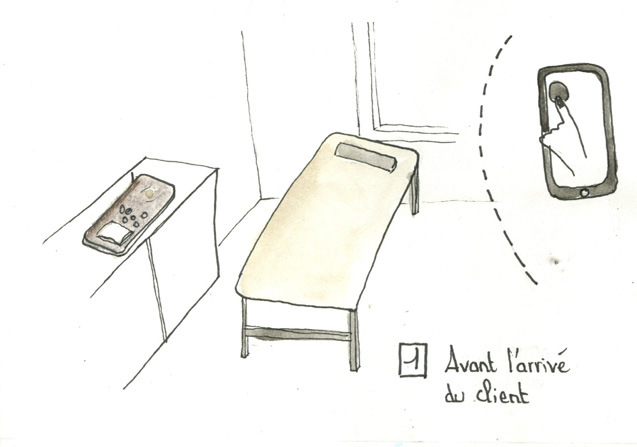 1 Avant l'arrivé
du client